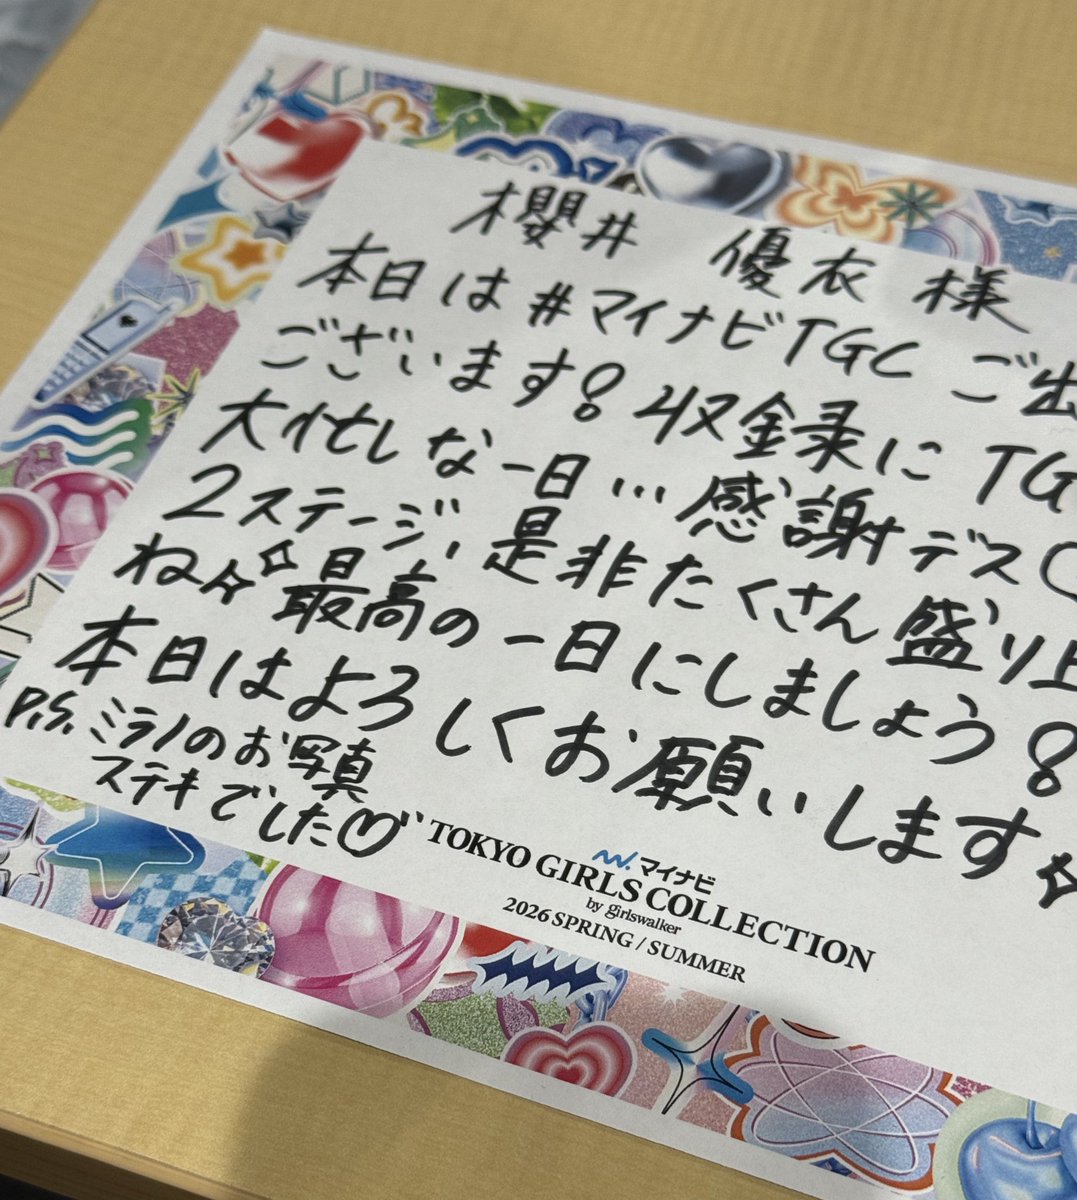 櫻井 優衣 様
本日は#マイナビTGC ご出
ございます!収録にTG
大忙しな一日…感謝デス♡
2ステージ、是非たくさん盛り上
ね✧✧最高の一日にしましょう!
本日はよろしくお願いします✧
P.S. ミラノのお写真
ステキでした♡
マイナビ
TOKYO GIRLS COLLECTION
by girlswalker
2026 SPRING / SUMMER